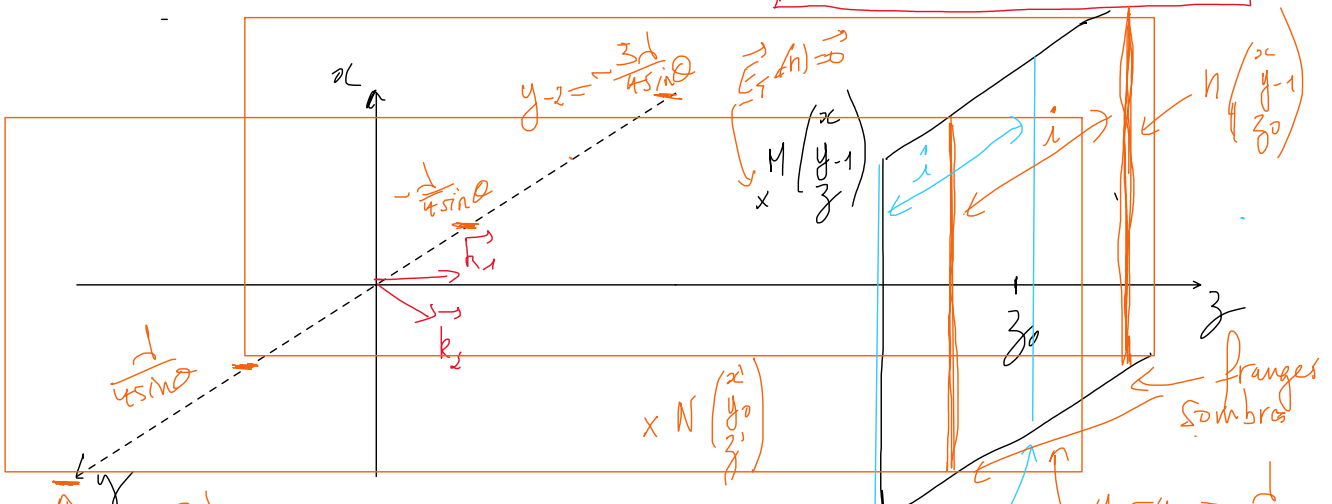 x
y₋₂ = -3d/4sinθ
E⃗_T(n) = 0⃗
M (x y₋₁ z)
n (x y₋₁ z₀)
i
i
-d/4sinθ
k⃗₁
k⃗₂
z₀
z
d/4sinθ
N (x' y₀ z')
franges
sombres
y